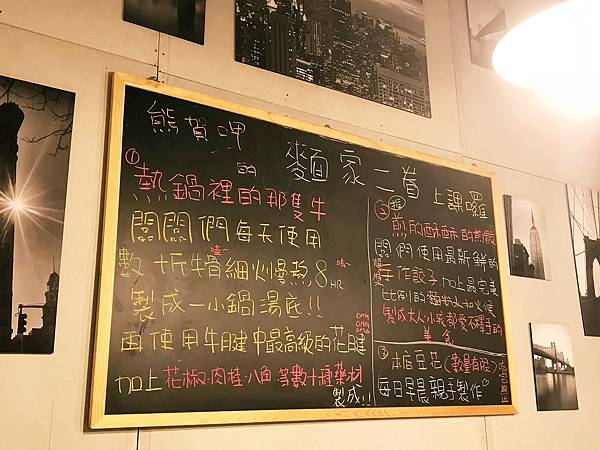 熊賀呷的 麵家二首 上課囉
① 熱鍋裡的那隻牛
闆闆們每天使用
數十斤牛骨細火慢熬8HR
製成一小鍋湯底!!
再使用牛腱中最高級的花腱
加上花椒·肉桂·八角 等數十種藥材
製成!!
② 煎的酥酥的煎餃
闆們使用最新鮮的
手作餃子加上最完美
比例的麵粉水和火侯
製成大人小孩都愛不釋手的
美食
③ 本店豆花(數量有限)
每日早晨親手製作